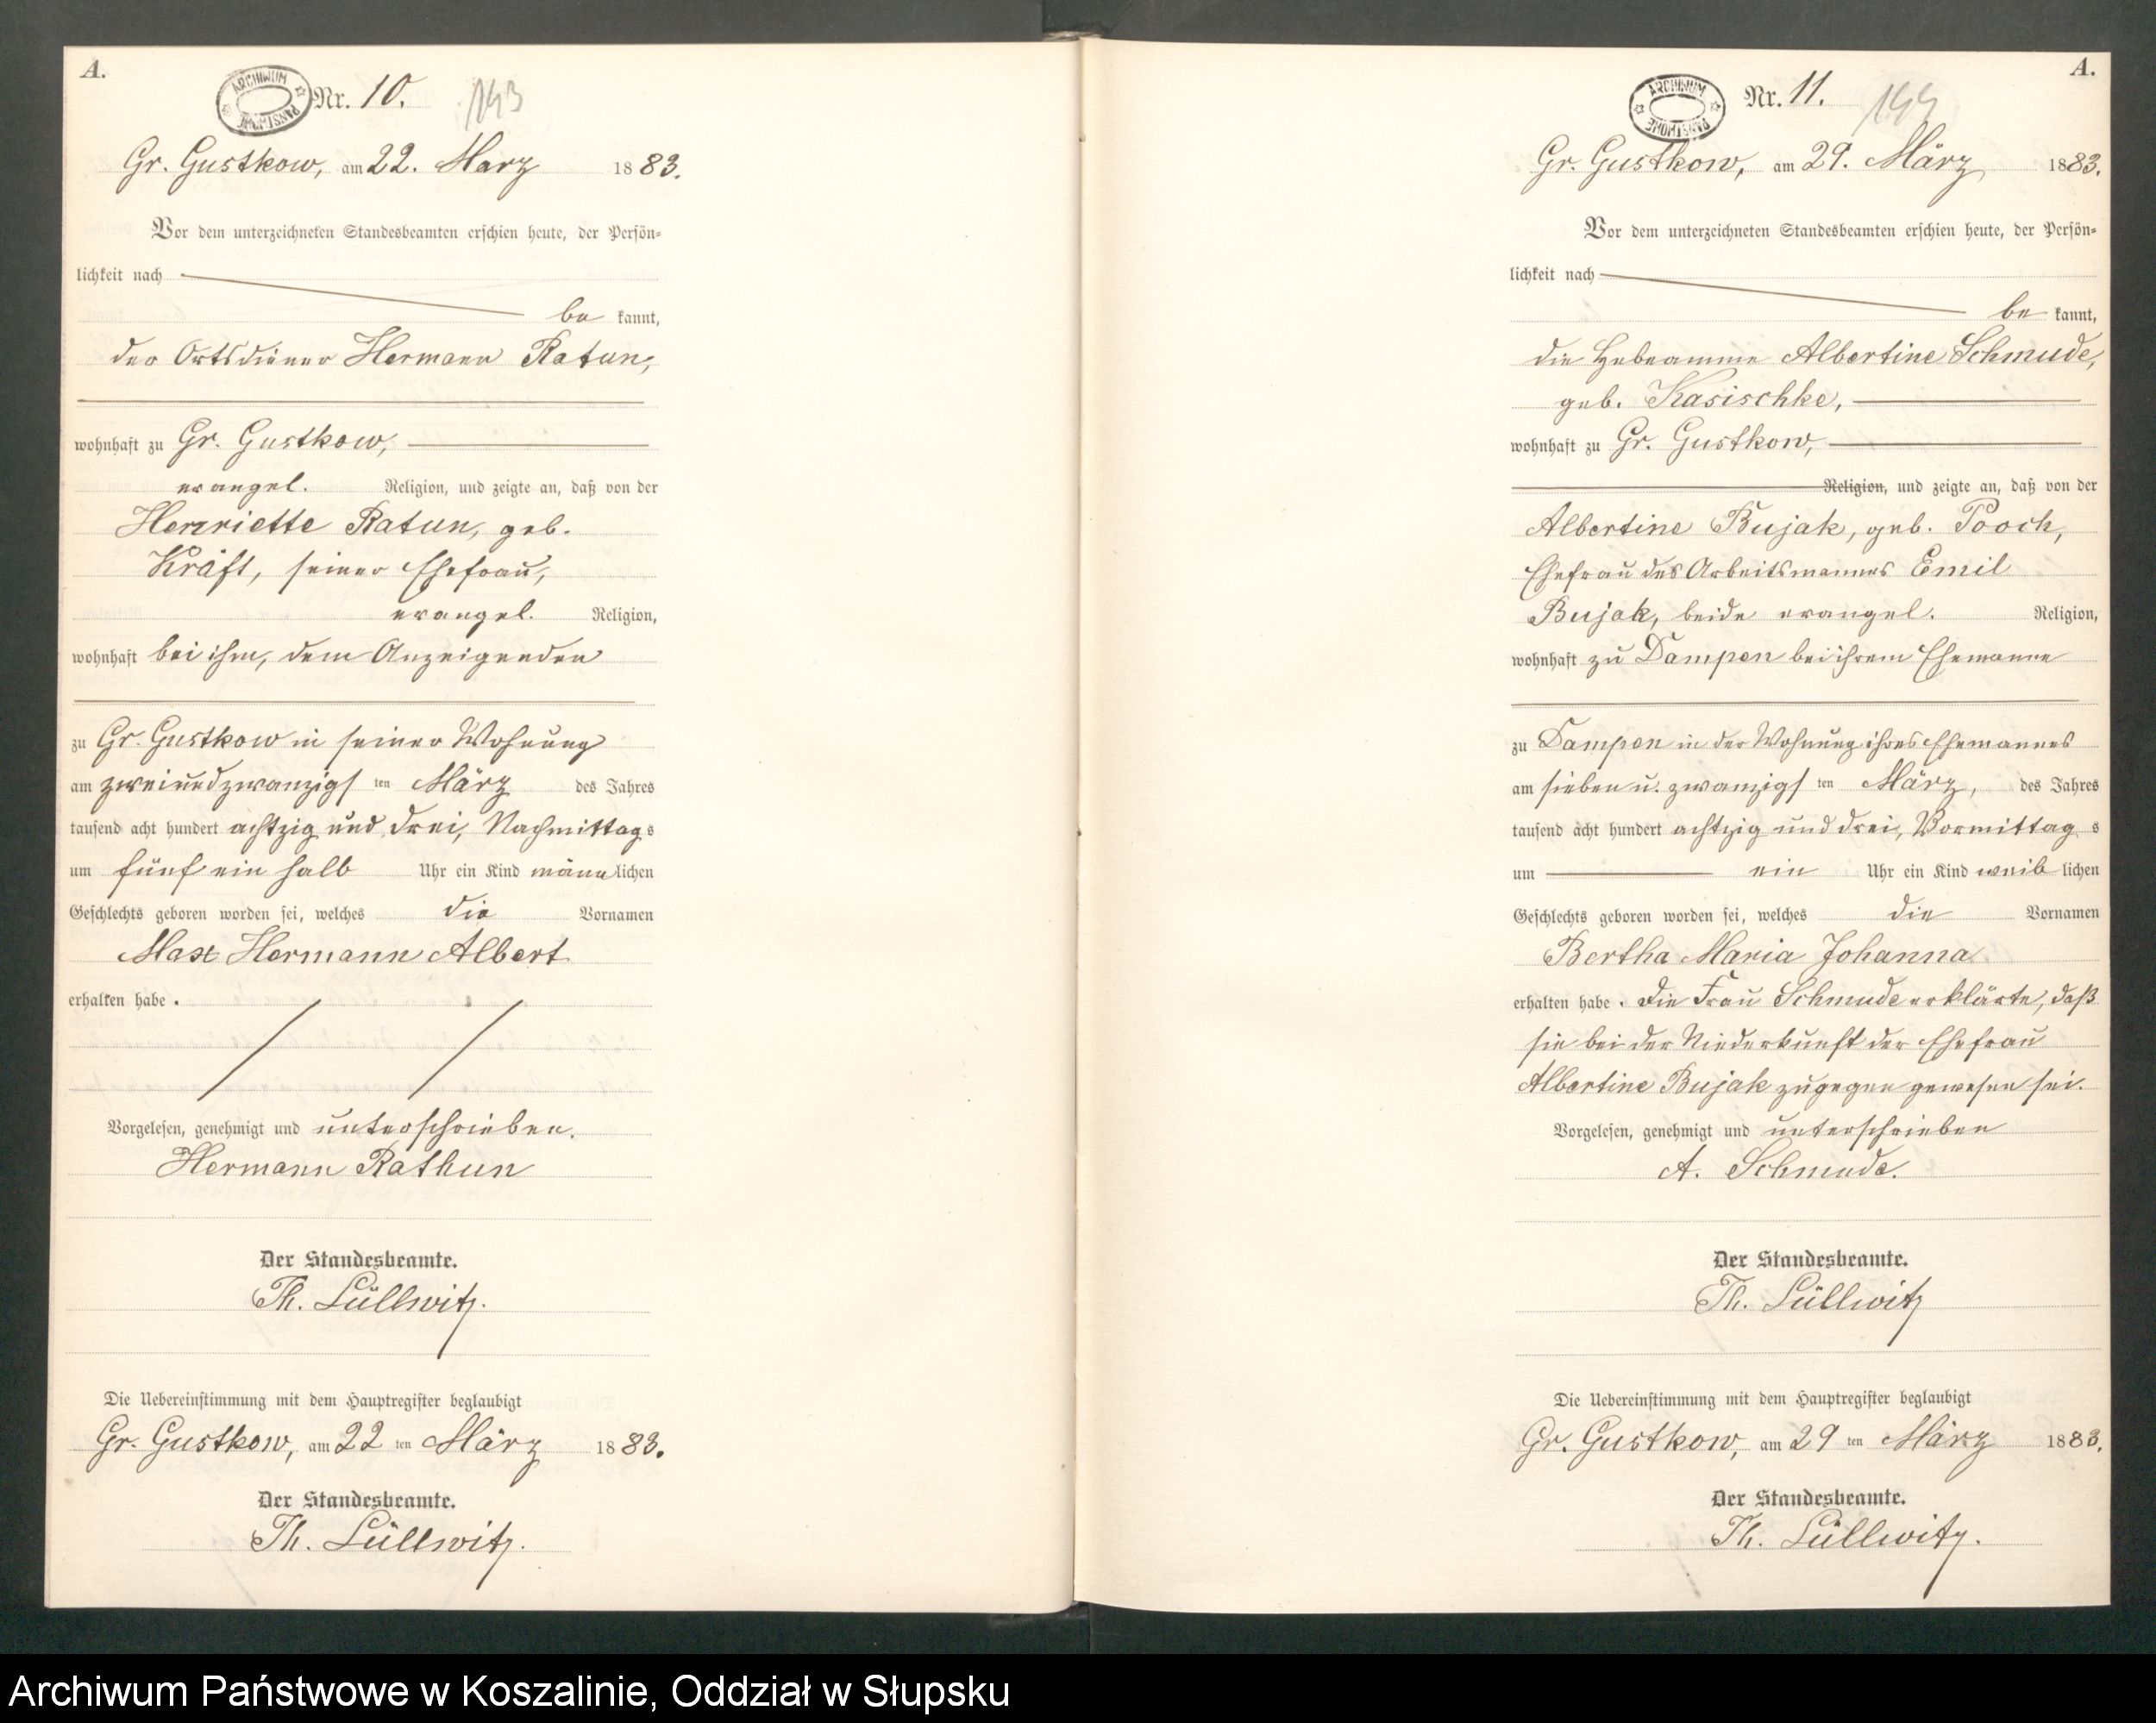 A.
ARCHIWUM PAŃSTWOWE
Nr. 10.
143
Gr. Gustkow, am 22. Marz 1883.
Vor dem unterzeichneten Standesbeamten erschien heute, der Persön-
lichkeit nach
be kannt,
der Ortsdiener Hermann Ratun,
wohnhaft zu Gr. Gustkow,
evangel. Religion, und zeigte an, daß von der
Henriette Ratun, geb.
Kräft, seiner Ehefrau,
evangel. Religion,
wohnhaft bei ihm, dem Anzeigenden
zu Gr. Gustkow in seiner Wohnung
am zweiundzwanzigs ten März des Jahres
tausend acht hundert achtzig und drei, Nachmittag s
um fünf ein halb Uhr ein Kind männ lichen
Geschlechts geboren worden sei, welches die Vornamen
Max Hermann Albert
erhalten habe.
Vorgelesen, genehmigt und unterschrieben.
Hermann Rathun
Der Standesbeamte.
Th. Lüllwitz.
Die Uebereinstimmung mit dem Hauptregister beglaubigt
Gr. Gustkow, am 22 ten März 1883.
Der Standesbeamte.
Th. Lüllwitz.
A.
ARCHIWUM PAŃSTWOWE
Nr. 11.
144
Gr. Gustkow, am 29. März 1883.
Vor dem unterzeichneten Standesbeamten erschien heute, der Persön-
lichkeit nach
be kannt,
die Hebeamme Albertine Schmude,
geb. Kasischke,
wohnhaft zu Gr. Gustkow,
Religion, und zeigte an, daß von der
Albertine Bujak, geb. Pooch,
Ehefrau des Arbeitsmannes Emil
Bujak, beide evangel. Religion,
wohnhaft zu Dampen bei ihrem Ehemanne
zu Dampen in der Wohnung ihres Ehemannes
am sieben u. zwanzigs ten März, des Jahres
tausend acht hundert achtzig und drei, Vormittag s
um ein Uhr ein Kind weib lichen
Geschlechts geboren worden sei, welches die Vornamen
Bertha Maria Johanna
erhalten habe. Die Frau Schmude erklärte, daß
sie bei der Niederkunft der Ehefrau
Albertine Bujak zugegen gewesen sei.
Vorgelesen, genehmigt und unterschrieben
A. Schmude.
Der Standesbeamte.
Th. Lüllwitz
Die Uebereinstimmung mit dem Hauptregister beglaubigt
Gr. Gustkow, am 29 ten März 1883.
Der Standesbeamte.
Th. Lüllwitz.
Archiwum Państwowe w Koszalinie, Oddział w Słupsku